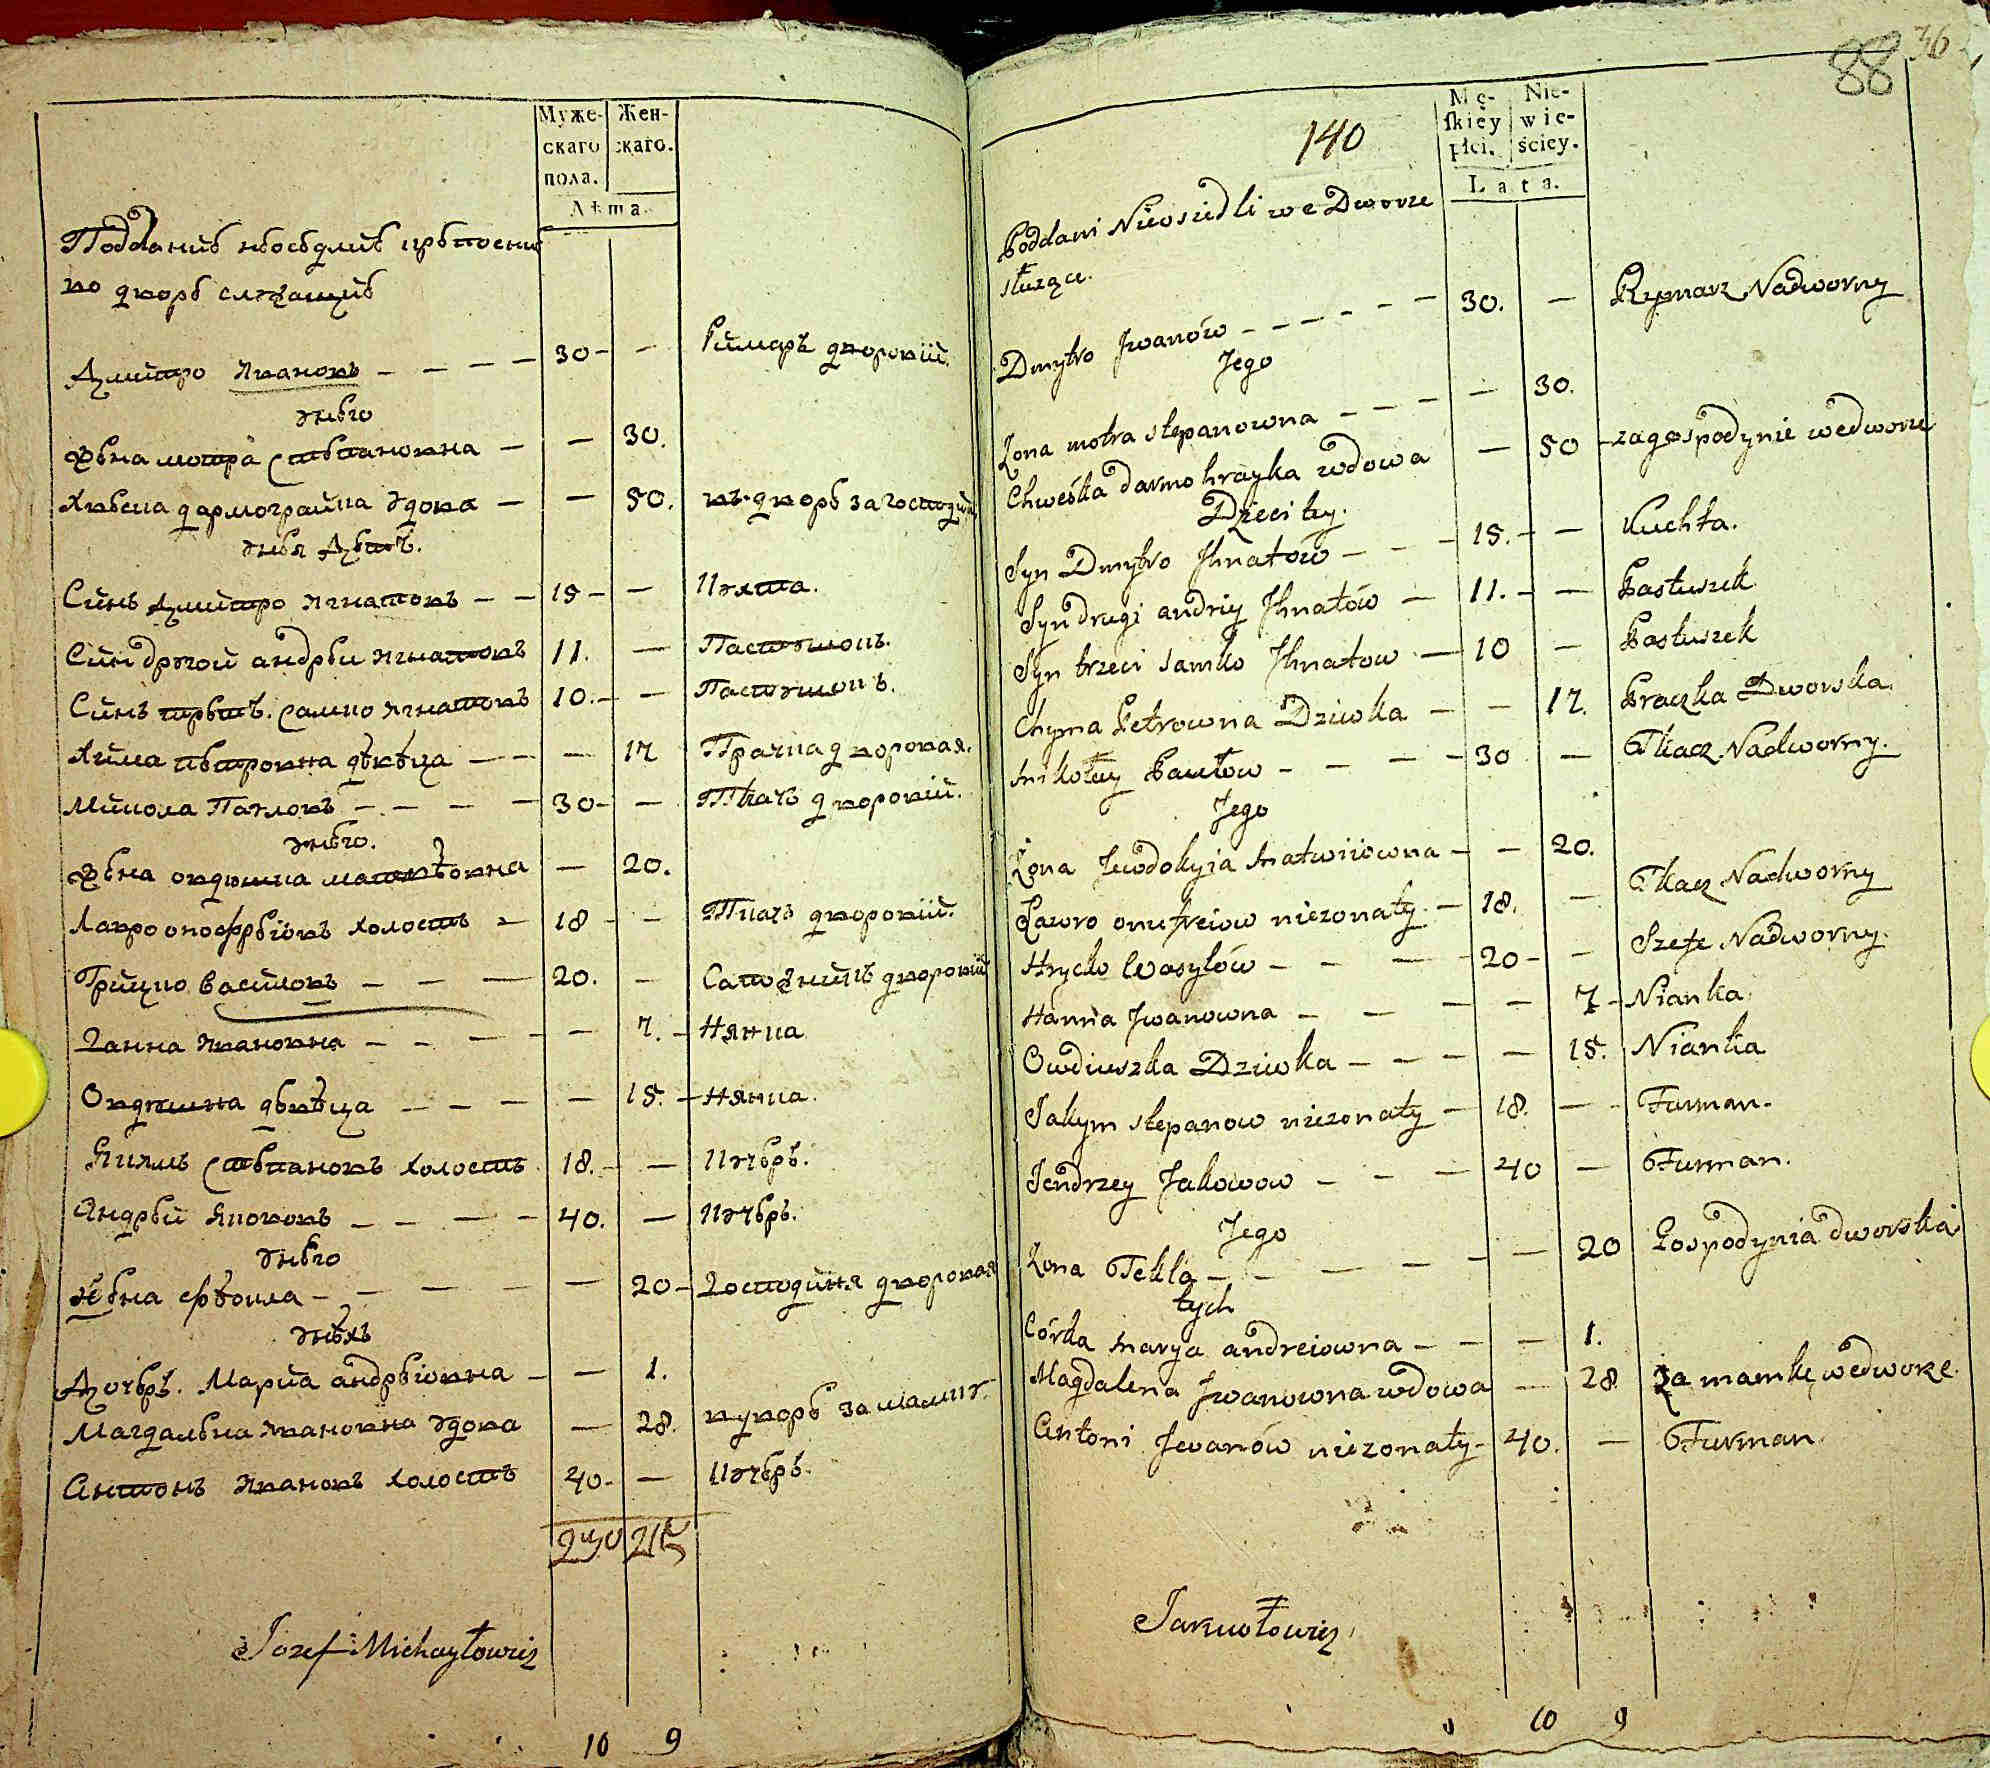 Муже- Жен-
скаго скаго.
пола.
Лѣта.
Подданиѣ неоседлиѣ крепосние
во дворѣ служащиѣ
Дмитро Ивановъ — — — — 30 — — Римаръ дворовій.
Жена мотра Степановна — — 30.
Хвеска дармограйка Вдова — — 50. въ дворѣ за господиню
Синъ Дмитро Игнатовъ — — 15 — — Кухта.
Синъ другой андрей Игнатовъ 11. — Пастушокъ.
Синъ третъ. Самко Игнатовъ 10. — — Пастушокъ.
Хима петровна дѣвѣца — — — 17 Прачка дворовая.
Микола Павловъ — — — — 30 — — Ткачъ дворовій.
Жена овдюшка матвѣовна — 20.
Лавро онофреіовъ холостъ — 18 — — Ткачъ дворовій.
Грицко Василовъ — — — 20. — Сапожникъ дворовій
Ганна Ивановна — — — — — 7. — Нянка
Овдюшка дѣвѣца — — — — 15. — Нянка.
Якимъ Степановъ холостъ 18. — — Кучеръ.
Андрей Якововъ — — — — 40. — Кучеръ.
Жена фѣокла — — — — 20 — Господиня дворовая
Дочеръ. Марйа андреіовна — — 1.
Магдалена Ивановна Вдова — 28. в дворѣ за мамку.
Антонъ Ивановъ холостъ 40. — Кучеръ.
240 215
Jozef Michayłowicz
10 9
88 36
140
Mę- Nie-
skiey wie-
płci. ściey.
Lata.
Poddani Nieosiedli we Dworze
służące.
Dmytro Jwanów — — — — — 30. — Rymarz Nadworny
Jego
Żona motra stepanowna — — — — — 30.
Chweśka darmohrayka wdowa — 50 — za gospodynie we dworze
Dzieci tey.
Syn Dmytro Jhnatów — — — 15. — — Kuchta.
Syn drugi andriy Jhnatów — 11. — — Pastuszek
Syn trzeci samko Jhnatow — 10 — Pastuszek
Chyma Petrowna Dziwka — — — 17. Praczka Dworska.
mikołay Pawłow — — — — 30 — Tkacz Nadworny.
Jego
Żona Jewdokyia matwiiowna — — 20.
Ławro onufreiow niezonaty — 18. — Tkacz Nadworny
Hrycko Wasylów — — — — 20 — — Szefc Nadworny.
Hanna Jwanowna — — — — 7 — Nianka.
Owdiuszka Dziwka — — — — 15. Nianka
Jakym stepanow niezonaty — 18. — — Furman.
Jendrzey Jakowow — — — 40 — Furman.
Jego
Żona Tekla — — — — — 20 Gospodynia dworska
tych
Córka marya andreiowna — — — 1.
Magdalena Jwanowna wdowa — 28 Za mamkę we dworze.
Antoni Jwanów niezonaty — 40. — Furman.
10 9